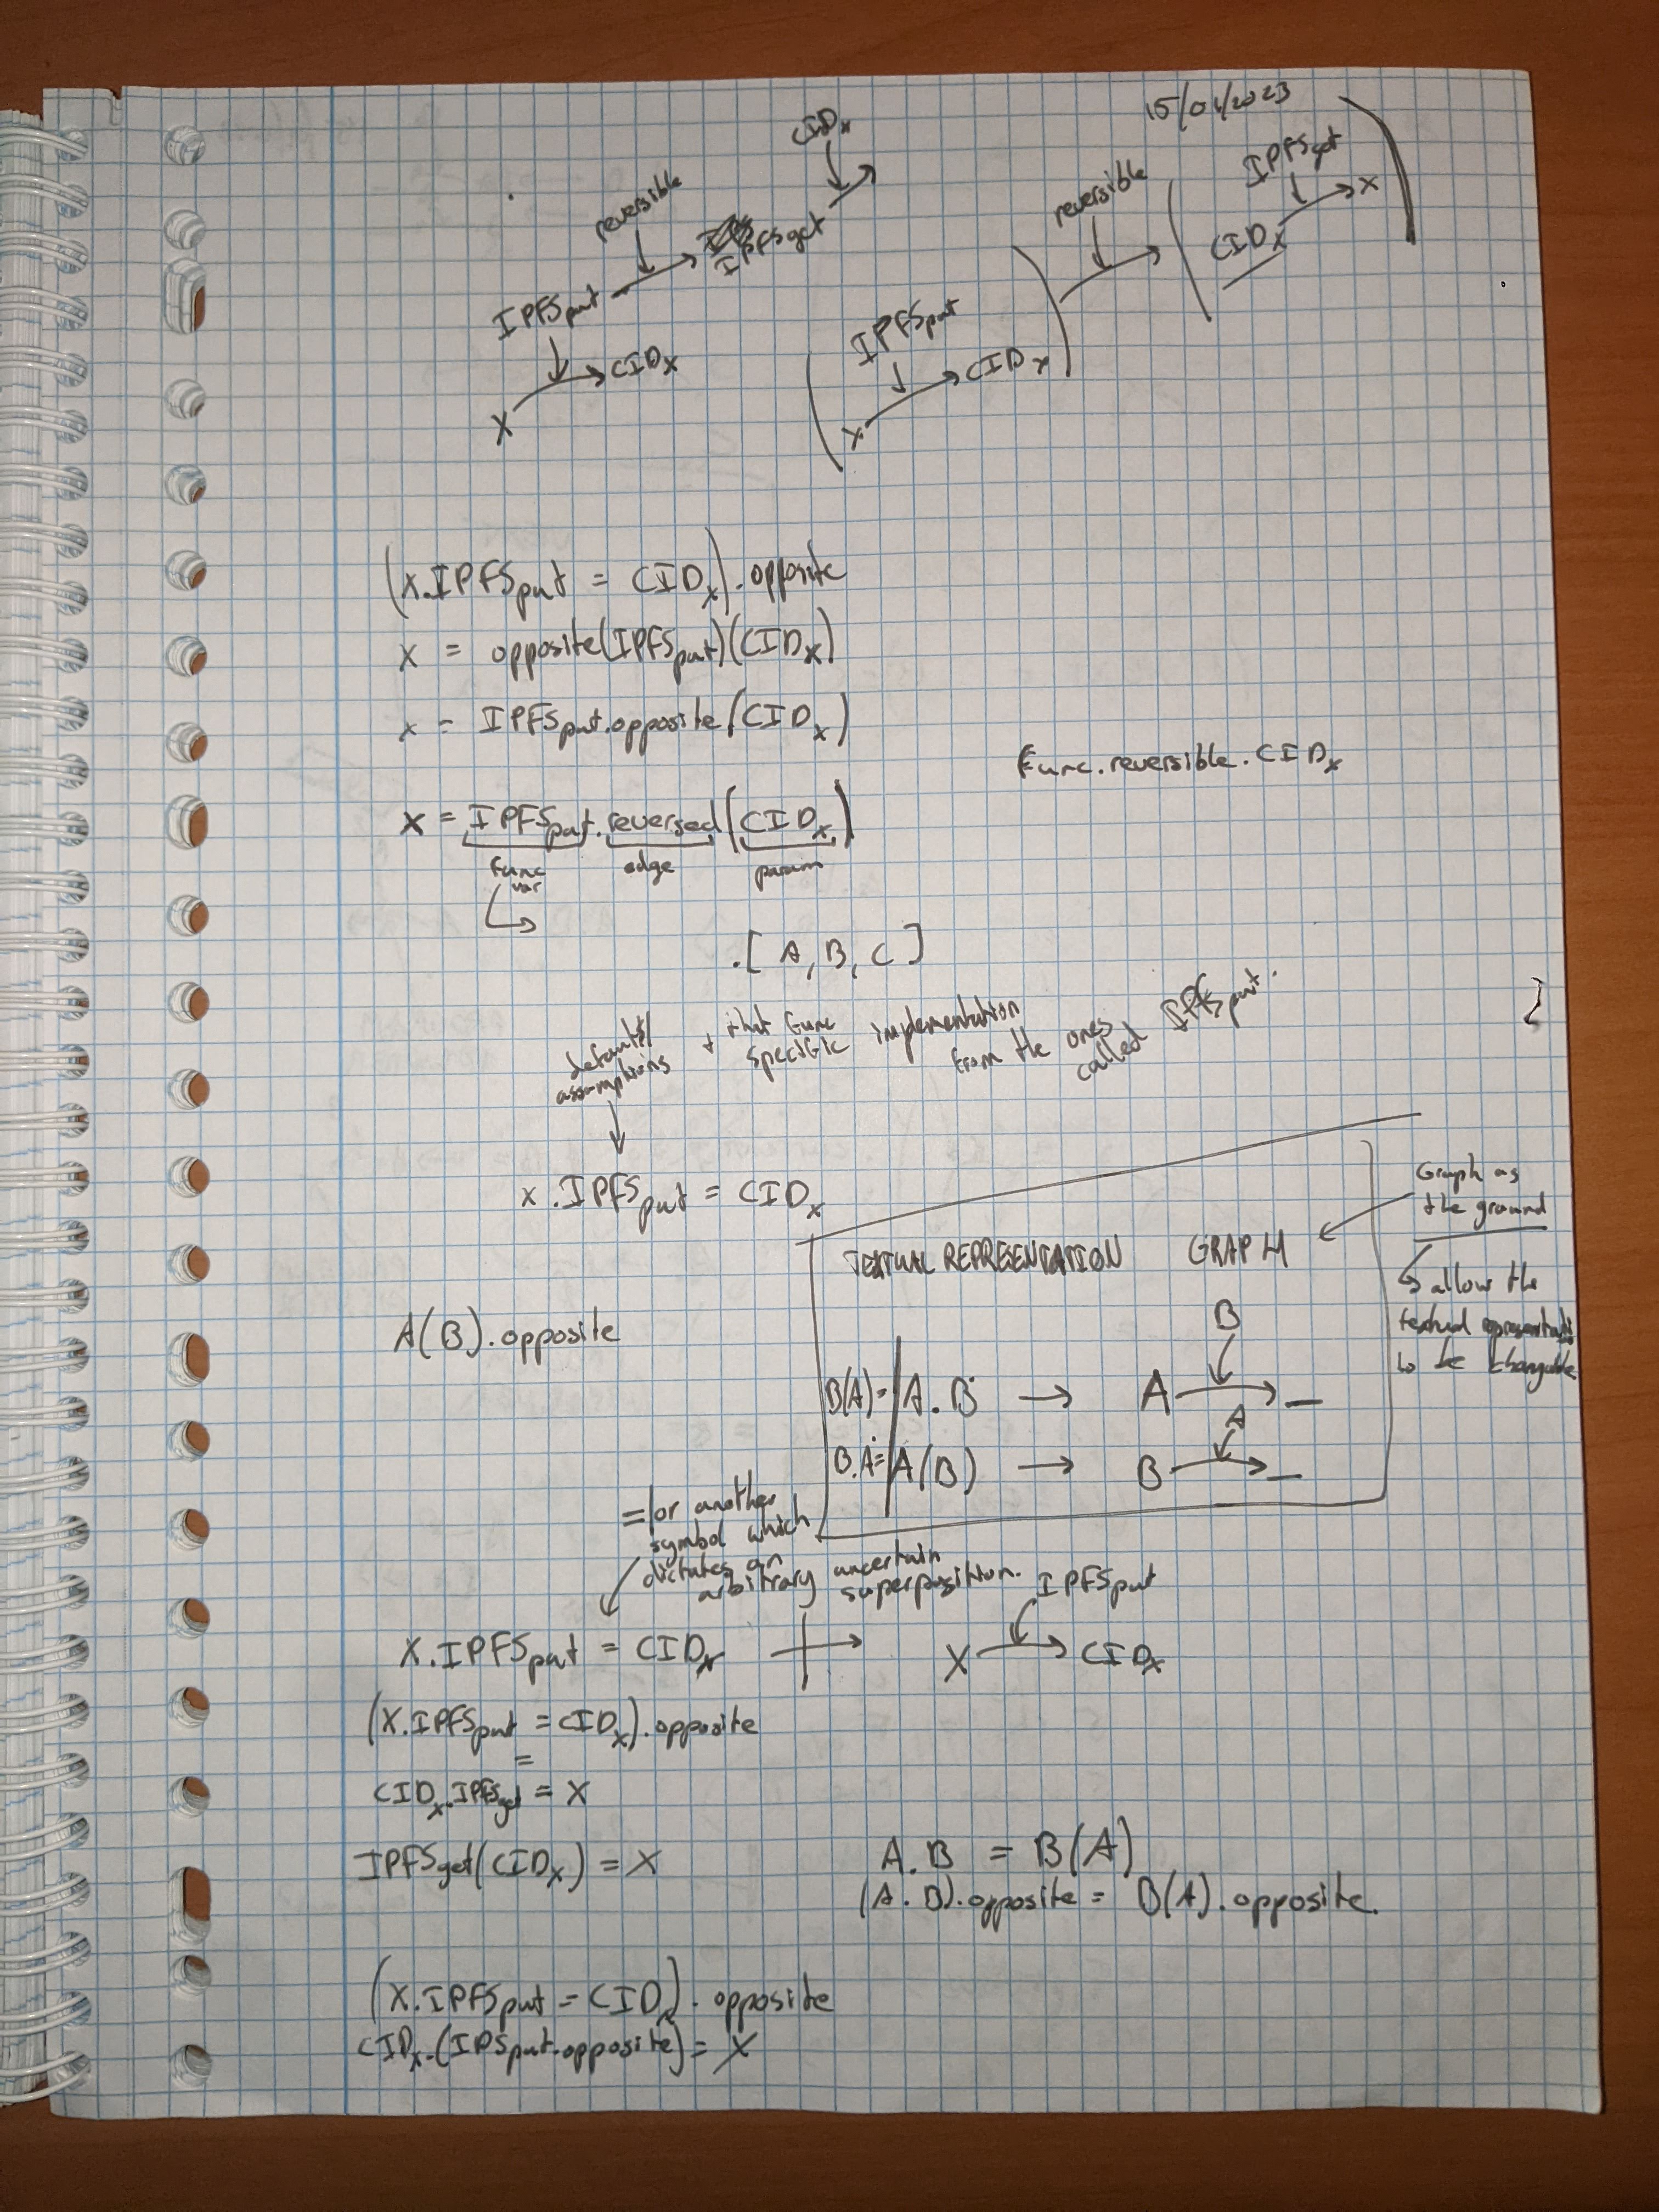 15/01/2023
CIDx
reversible
IPFSget
IPFSput
X → CIDx
reversible
IPFSget
CIDx → x
IPFSput
x → CIDx
(x.IPFSput = CIDx).opposite
x = opposite(IPFSput)(CIDx)
x = IPFSput.opposite(CIDx)
Func.reversible.CIDx
x = IPFSput.reversed(CIDx)
func var
edge
param
.[A, B, C]
defaults/
assumptions
+ that func
specific implementation
from the ones
called IPFSput.
x.IPFSput = CIDx
Graph as
the ground
↳ allow the
textual representati
to be changable
TEXTUAL REPRESENTATION GRAPH
A(B).opposite
B
B(A) = A.B → A → _
A
B.A = A(B) → B → _
= /or another
symbol which
dictates an
arbitrary uncertain
superposition.
IPFSput
X.IPFSput = CIDx → X → CIDx
(X.IPFSput = CIDx).opposite
=
CIDx.IPFSget = X
IPFSget(CIDx) = X
A.B = B(A)
(A.B).opposite = B(A).opposite.
(X.IPFSput = CIDx).opposite
CIDx.(IPSput.opposite) = X